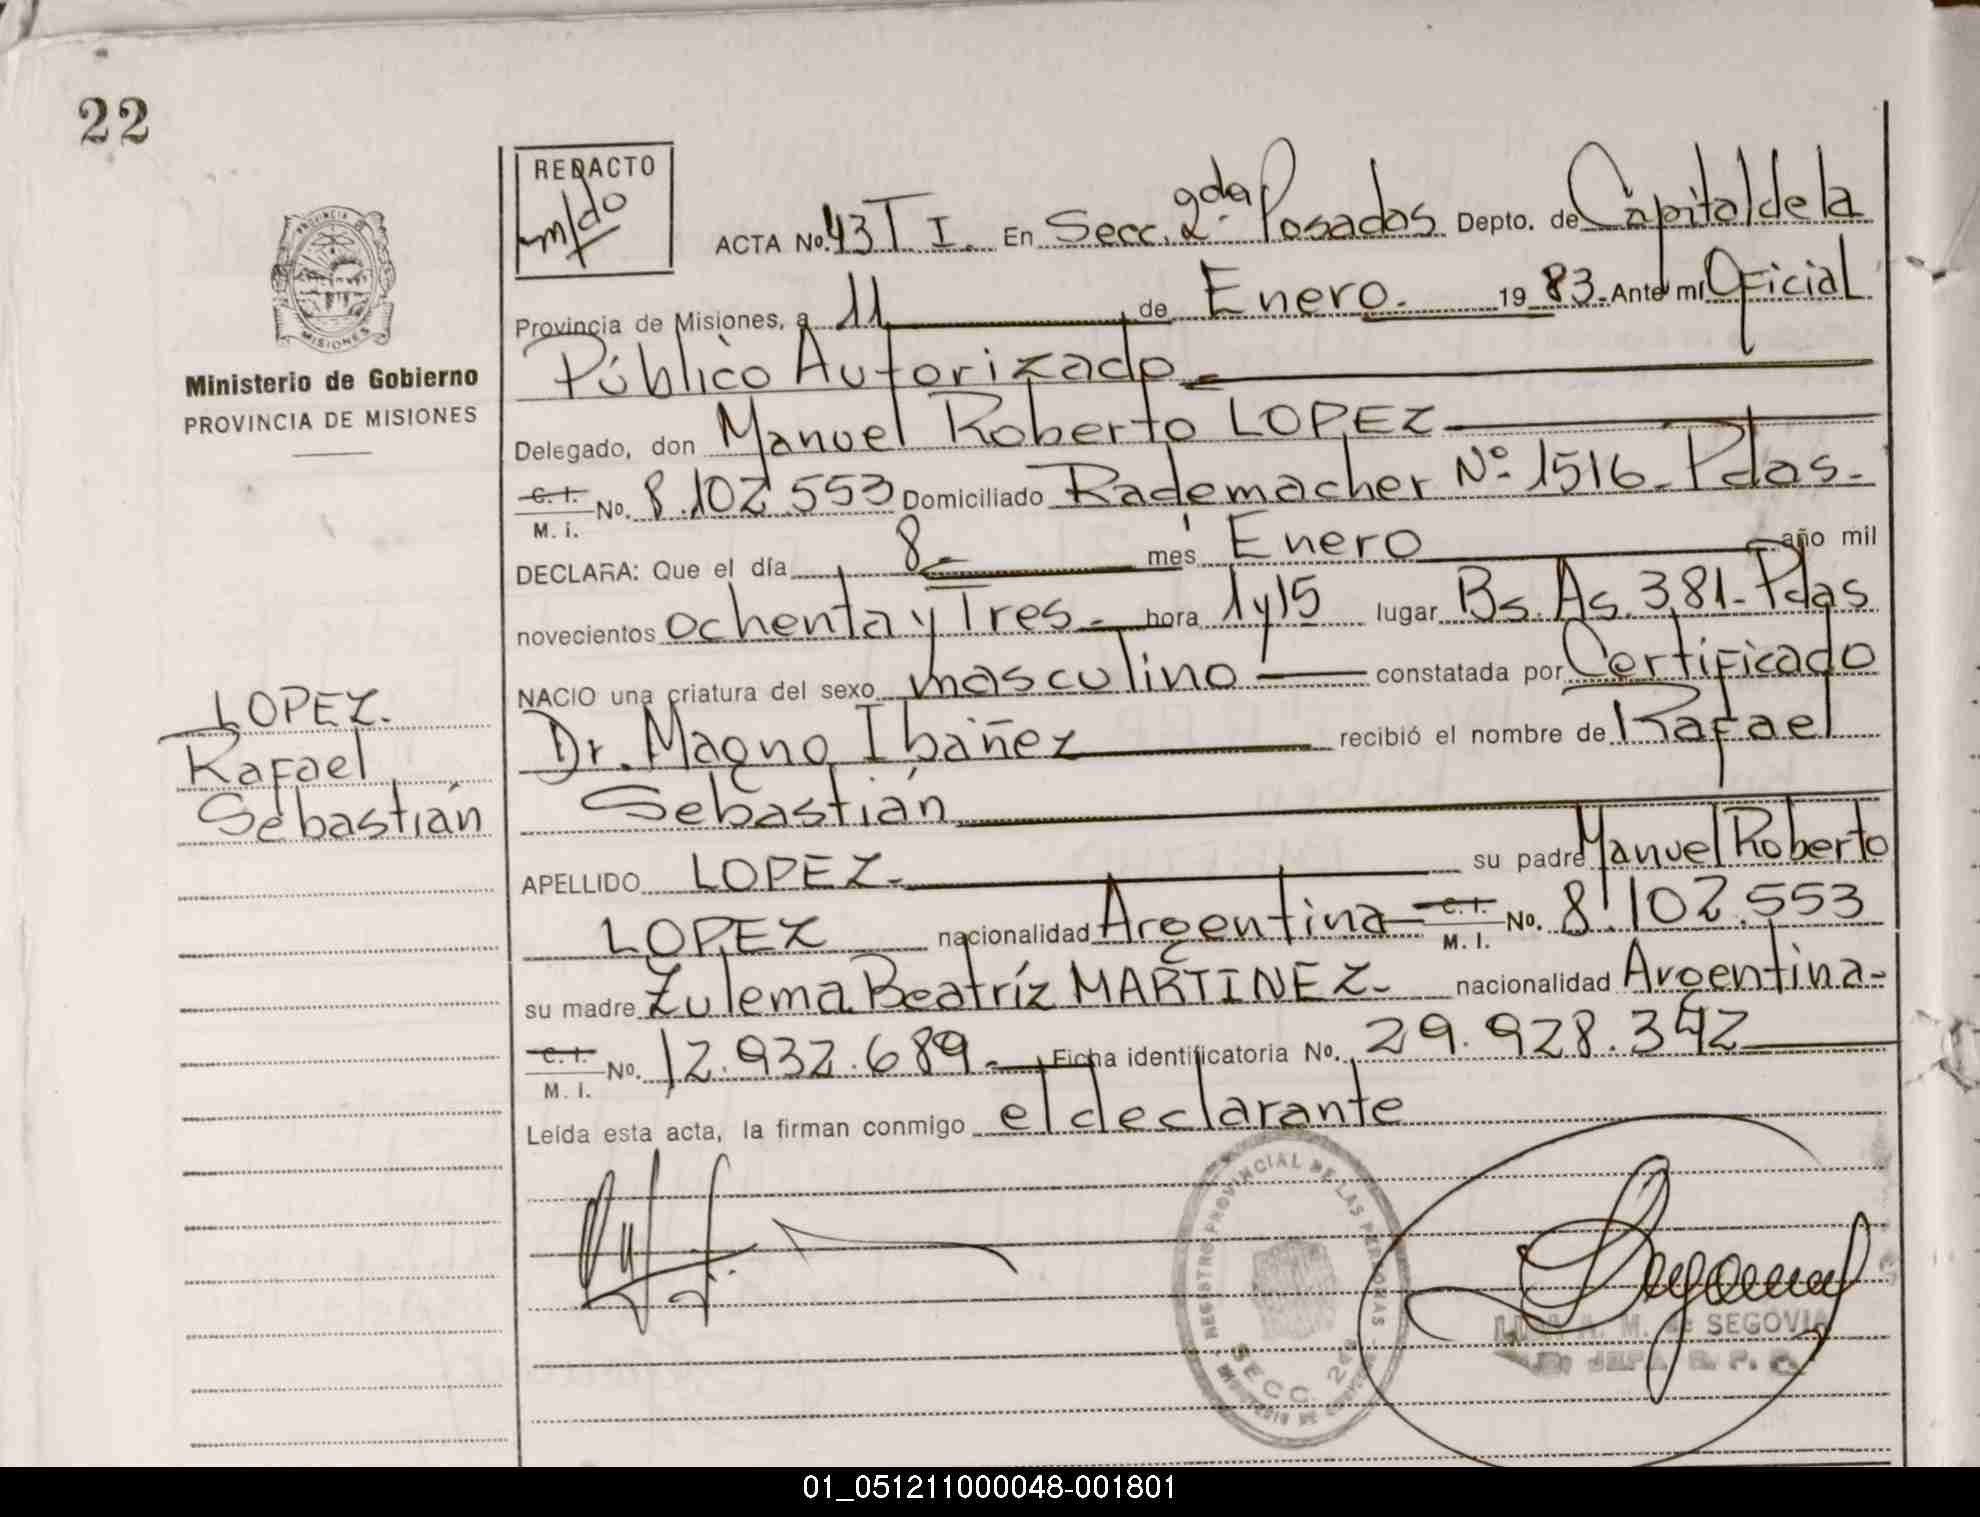 22
REDACTO
m/do
ACTA No. 43 T I. En Secc. 2da. Posadas Depto. de Capital de la
Provincia de Misiones, a 11 de Enero. 19 83. Ante mi Oficial
Público Autorizado
Delegado, don Manuel Roberto LOPEZ
C. I. M. i. No. 8.102.553 Domiciliado Rademacher Nº 1516 - Pdas.
DECLARA: Que el día 8 mes Enero año mil
novecientos ochenta y Tres hora 1 y 15 lugar Bs. As. 381 - Pdas
NACIO una criatura del sexo masculino constatada por Certificado
Dr. Magno Ibañez recibió el nombre de Rafael
Sebastián
APELLIDO LOPEZ. su padre Manuel Roberto
LOPEZ nacionalidad Argentina C. I. M. I. No. 8.102.553
su madre Zulema Beatríz MARTINEZ. nacionalidad Argentina
C. I. M. I. No. 12.932.689. Ficha identificatoria No. 29.928.342
Leída esta acta, la firman conmigo el declarante
PROVINCIA
MISIONES
Ministerio de Gobierno
PROVINCIA DE MISIONES
LOPEZ.
Rafael
Sebastián
REGISTRO PROVINCIAL DE LAS PERSONAS
SECC. 2da
A. M. de SEGOVIA
JEFA R. P. P.
01_051211000048-001801